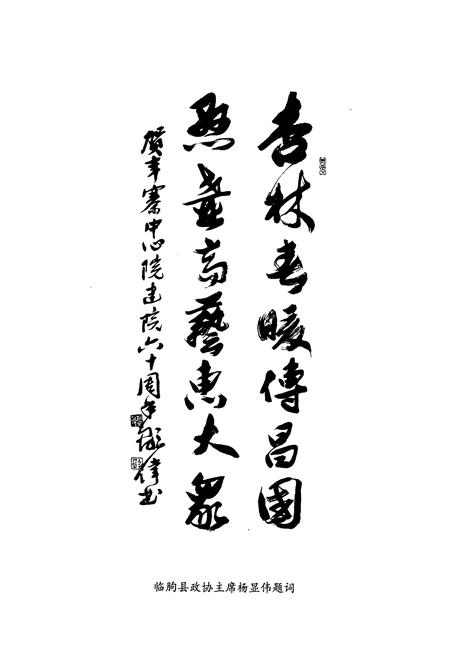 杏林春暖傳昌國
懸壺高藝惠大眾
賀辛寨中心院建院六十周年 顯偉书
临朐县政协主席杨显伟题词